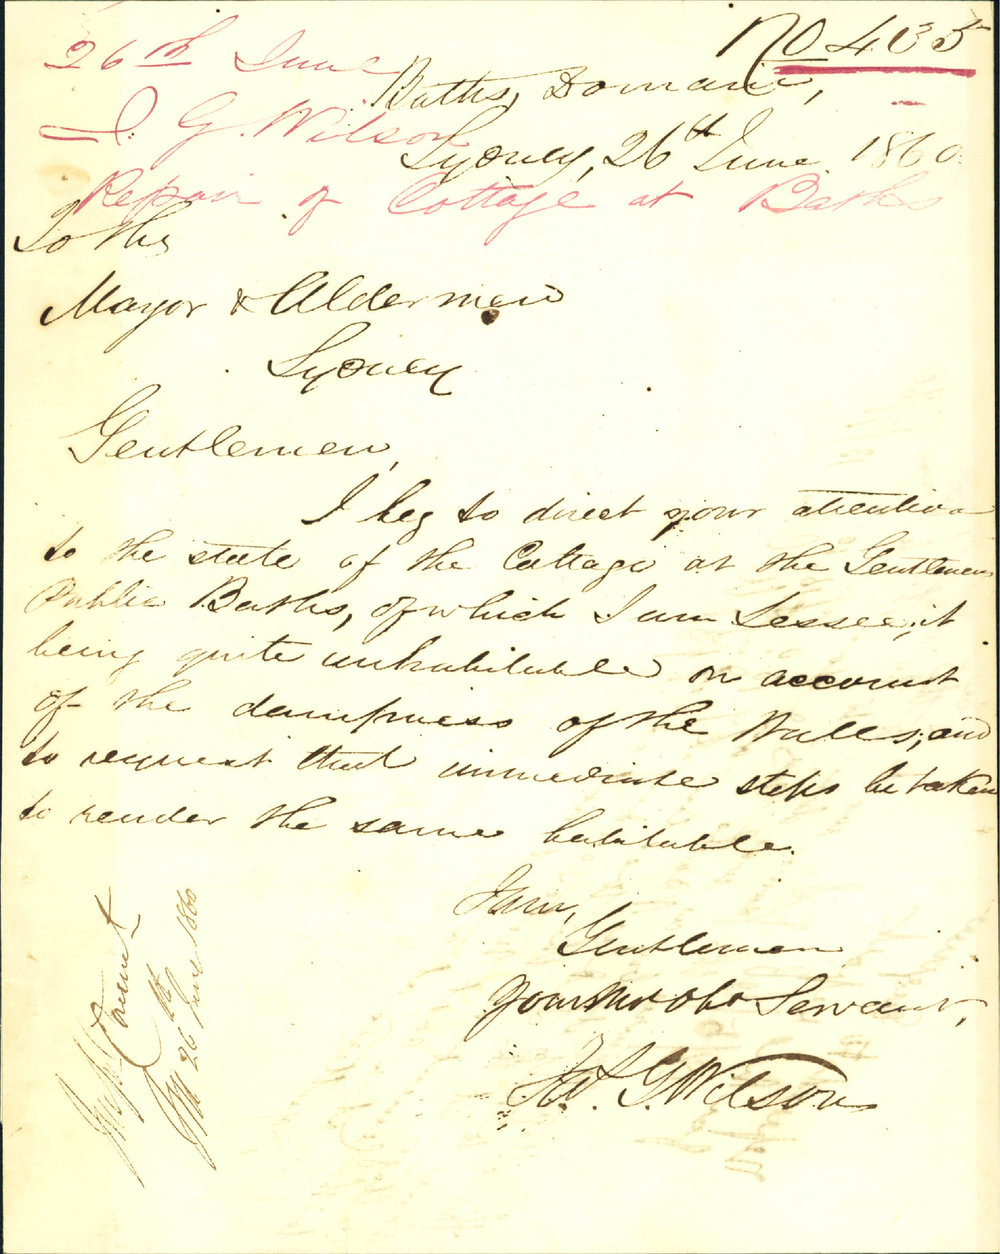 No 435
26th June
J. G. Wilson
Repair of Cottage at Baths
Baths, Domain,
Sydney, 26th June 1860
To the
Mayor & Aldermen
Sydney
Gentlemen,
I beg to direct your attention
to the state of the Cottage at the Gentlemens
Public Baths, of which I am Lessee, it
being quite unhabitable on account
of the dampness of the Walls; and
to request that immediate steps be taken
to render the same habitable.
I am,
Gentlemen
Your Mo Obt Servant,
G. Wilson
Imppt Comt
26th June 1860